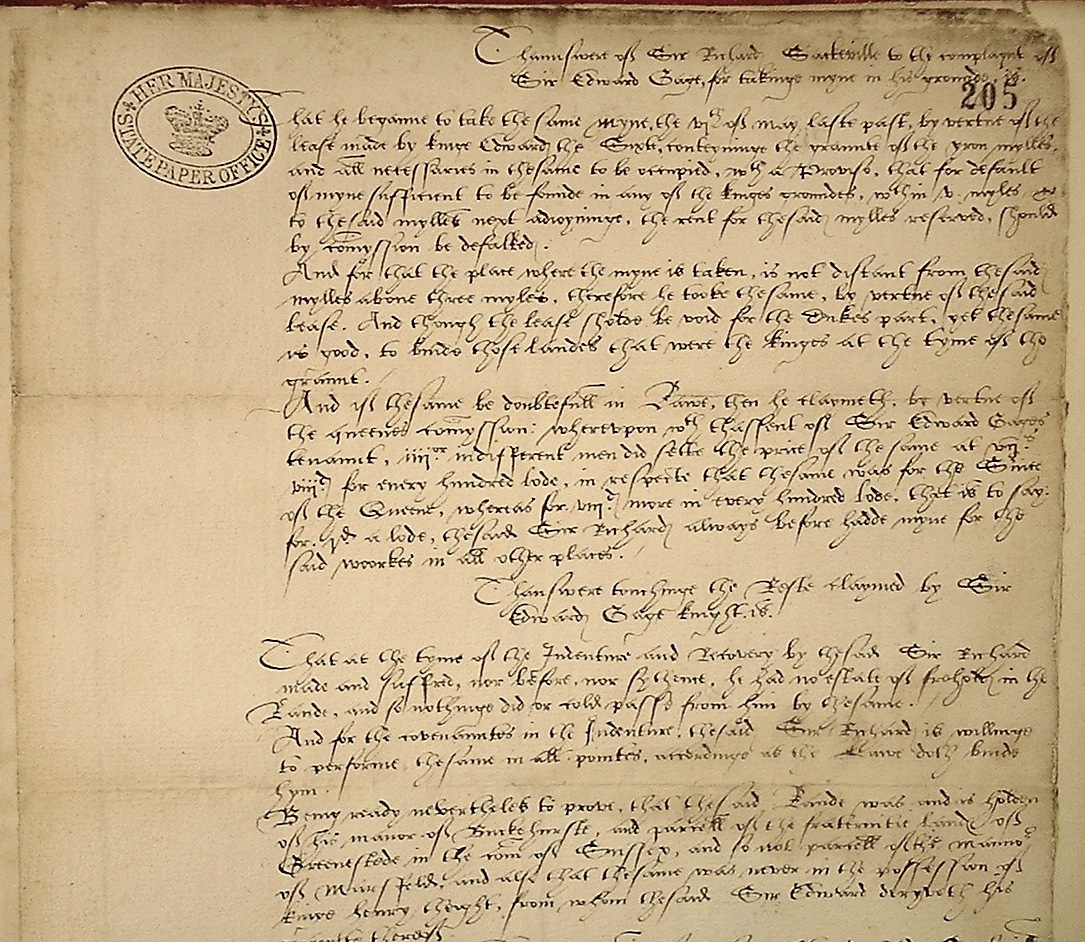 Thaunswere of Sir Richard Sackeville to the complaynt of
Sir Edward Gage, for takinge myne in his growndes. is.
205
HER MAJESTY'S STATE PAPER OFFICE
That he beganne to take the same myne, the vjth of may laste past, by vertue of the
lease made by kinge Edward the Sixt, conteyninge the graunte of the yron mylles,
and all necessaries in thesame to be occupied, wth a Proviso, that for default
of myne sufficient to be founde in any of the kinges groundes, wthin v. myles
to thesaid mylles next adioyninge, the rent for thesaid mylles reserved, should
by comyssion be defalked.
And for that the place where the myne is taken, is not distant from thesaid
mylles above three myles, therefore he tooke thesame, by vertue of thesaid
lease. And though the lease sholde be void for the Dukes part, yet thesame
is good, to binde those landes that were the kinges at the tyme of the
graunt.
And if thesame be doubtefull in Lawe, then he claymeth, by vertue of
the queenes comyssion: wherevpon wth thassent of Sir Edward Gages
tenaunt, iiiior indifferent men did sette the price of thesame at vijs
viijd for every hundred lode, in respecte that thesame was for the
of the Queene, whereas for viijd more in every hundred lode, that is to say:
for jd a lode, thesaid Sir Richard always before hadde myne for the
said woorkes in all other places.
Thanswere touchinge the Reste claymed by Sir
Edward Gage knight. is.
That at the tyme of the Indenture and Recovery by thesaid Sir Richard
made and suffred, nor before, nor sythence, he had no estate of freholde in the
Lande, and so nothinge did or cold passe from him by thesame.
And for the covenauntes in the Indenture, thesaid Sir Richard is willinge
to performe thesame in all pointes, accordinge as the Lawe doth binde
hym.
Being ready neverthelesse to prove, that thesaid Lande was and is holden
of his manor of Buckehurste, and parcell of the fraternitie land of
Greenestede in the com of Sussex, and so not parcell of the mannor
of Marsfeld, and also that thesame was never in the possession of
kinge henry theight, from whom thesaid Sir Edward deryveth his
thereof.